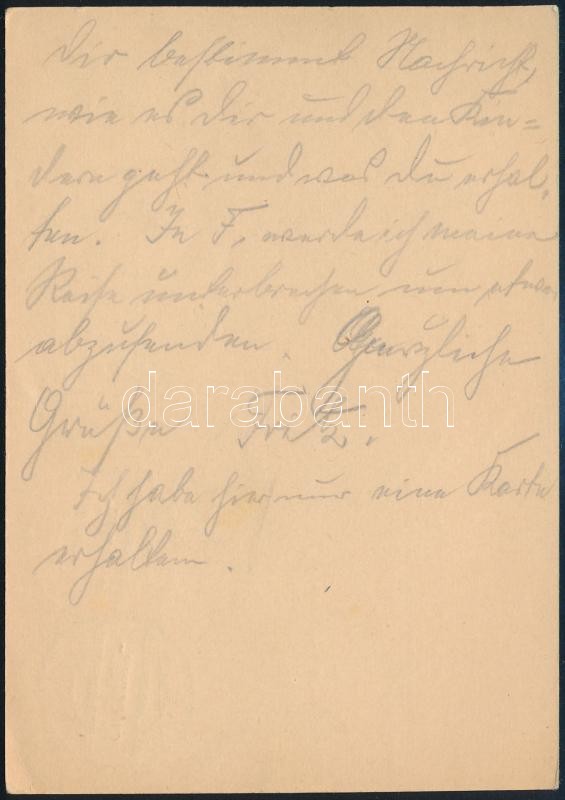 Dir bestimmt Nachricht,
wie es Dir und den Kin=
dern geht und was Du erhal-
ten. In F. werde ich meine
Reise unterbrechen um etwas
abzusenden. Herzliche
darabanth
Grüße Fritz.
Ich habe hier nur eine Karte
erhalten.